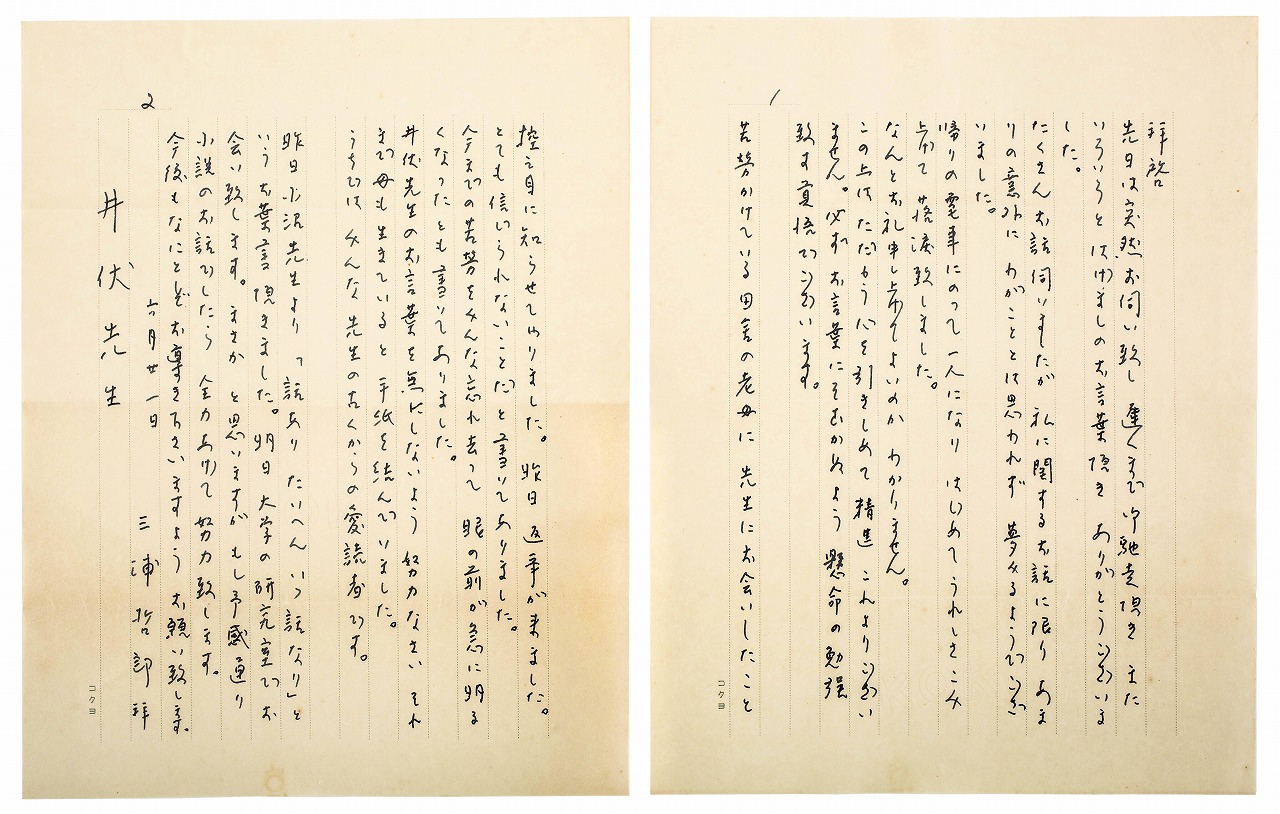 1
拝啓
先日は突然お伺い致し 遅くまで御馳走頂き また
いろいろとはげましのお言葉頂き ありがとうございま
した。
たくさんお話伺いましたが 私に関するお話に限り あま
りの意外に わがこととは思われず 夢みるようでござ
いました。
帰りの電車にのって一人になり はじめてうれしさこみ
上げて 落涙致しました。
なんとお礼申し上げてよいのか わかりません。
この上はただもう心を引きしめて 精進 これよりござい
ません。必ずお言葉にそむかぬよう 懸命の勉強
致す覚悟でございます。
苦労かけている田舎の老母に 先生にお会いしたこと
コクヨ
2
控え目に知らせてやりました。昨日 返事が来ました。
とても信じられないことだと書いてありました。
今までの苦労をみんな忘れ去って 眼の前が急に明る
くなったとも書いてありました。
井伏先生のお言葉を無にしないよう 努力なさい それ
まで母も生きていると 手紙を結んでいました。
うちではみんな 先生の古くからの愛読者です。
昨日小沼先生より「話あり たいへん いゝ話なり」と
いうお葉書頂きました。明日 大学の研究室でお
会い致します。まさか と思いますが もし予感通り
小説のお話でしたら 全力あげて 努力致します。
今後もなにとぞお導き下さいますよう お願い致します。
六月廿一日
三浦哲郎 拝
井伏先生
コクヨ